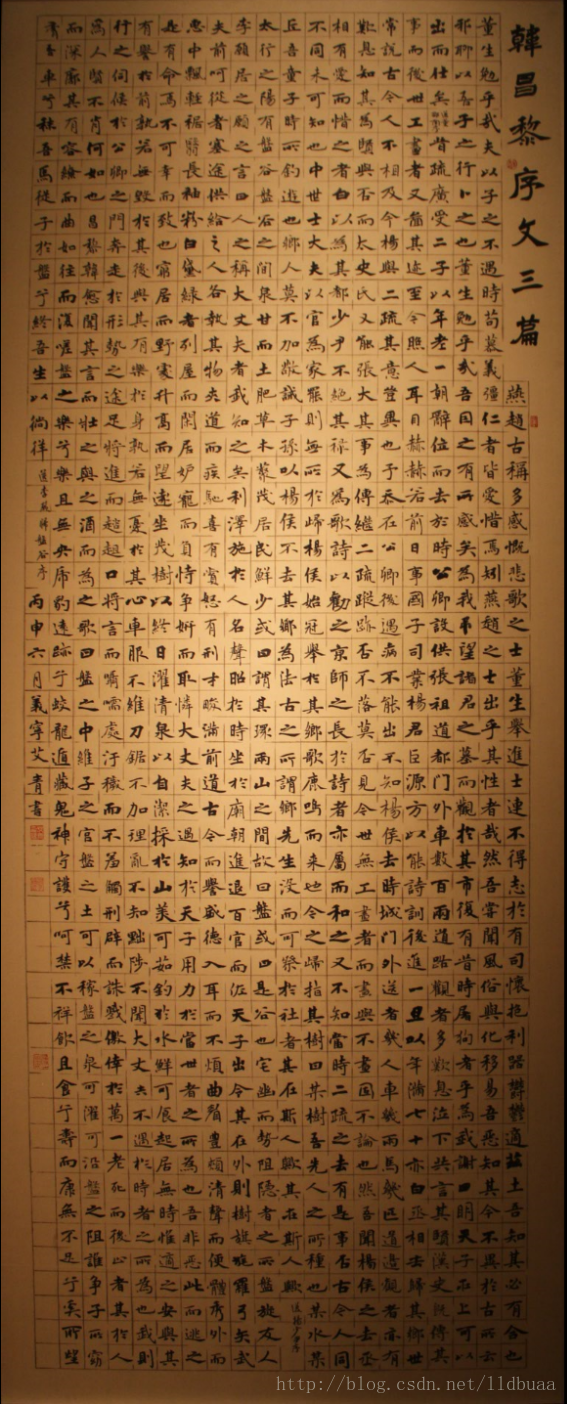 韓昌黎序文三篇
燕趙古稱多感慨悲歌之士董生舉進士連不得志於有司懷抱利器鬱鬱適茲土吾知其必有合也
董生勉乎哉夫以子之不遇時苟慕義彊仁者皆愛惜焉矧燕趙之士出乎其性者哉然吾嘗聞風俗與化移易吾惡知其今不異於古所云
邪聊以吾子之行卜之也董生勉乎哉吾因之有所感矣為我弔望諸君之墓而觀於其市復有昔時屠狗者乎為我謝曰明天子在上可以
出而仕矣 送董邵南序 昔疏廣受二子以年老一朝辭位而去於時公卿設供張祖道都門外車數百兩道路觀者多歎息泣下共言其賢漢史既傳其
事而後世工畫者又圖其迹至今照人耳目赫赫若前日事國子司業楊君巨源方以能詩訓後進一旦以年滿七十亦白丞相去歸其鄉世
常說古今人不相及今楊與二疏其意豈異也予忝在公卿後遇病不能出不知楊侯去時城門外送者幾人車幾兩馬幾匹道邊觀者亦有
歎息知其為賢與否而太史氏又能張大其事為傳繼二疏蹤跡否不落莫否見今世無工畫者而畫與不畫固不論也然吾聞楊侯之去丞
相有愛而惜之者白以為其都少尹不絕其祿又為歌詩以勸之京師之長於詩者亦屬而和之又不知當時二疏之去有是事否古今人同
不同未可知也中世士大夫以官為家罷則無所於歸楊侯始冠舉於其鄉歌鹿鳴而來也今之歸指其樹曰某樹吾先人之所種也某水某
丘吾童子時所釣遊也鄉人莫不加敬誡子孫以楊侯不去其鄉為法古之所謂鄉先生沒而可祭於社者其在斯人歟其在斯人歟 送楊少尹序
太行之陽有盤谷盤谷之間泉甘而土肥草木藂茂居民鮮少或曰謂其環兩山之間故曰盤或曰是谷也宅幽而勢阻隱者之所盤旋友人
李愿居之愿之言曰人之稱大丈夫者我知之矣利澤施於人名聲昭於時坐於廟朝進退百官而佐天子出令其在外則樹旗旄羅弓矢武
夫前呵從者塞途供給之人各執其物夾道而疾馳喜有賞怒有刑才畯滿前道古今而譽盛德入耳而不煩曲眉豐頰清聲而便體秀外而
惠中飄輕裾翳長袖粉白黛綠者列屋而閑居妒寵而負恃爭妍而取憐大丈夫之遇知於天子用力於當世者之所為也吾非惡此而逃之
是有命焉不可幸而致也窮居而野處升高而望遠坐茂樹以終日濯清泉以自潔採於山美可茹釣於水鮮可食起居無時惟適之安與其
有譽於前孰若無毀於其後與其有樂於身孰若無憂於其心車服不維刀鋸不加理亂不知黜陟不聞大丈夫不遇於時者之所為也我則
行之伺候於公卿之門奔走於形勢之途足將進而趑趄口將言而囁嚅處汙穢而不羞觸刑辟而誅戮僥倖於萬一老死而後止者其於人
為人賢不肖何如也昌黎韓愈聞其言而壯之與之酒而為之歌曰盤之中維子之宮盤之土可以稼盤之泉可濯可沿盤之阻誰爭子所窈
而深廓其有容繚而曲如往而復嗟盤之樂兮樂且無央虎豹遠跡兮蛟龍遁藏鬼神守護兮呵禁不祥飲且食兮壽而康無不足兮奚所望
膏吾車兮秣吾馬從子於盤兮終吾生以徜徉 送李愿歸盤谷序 丙申六月義寧艾青書
http://blog.csdn.net/lldbuaa